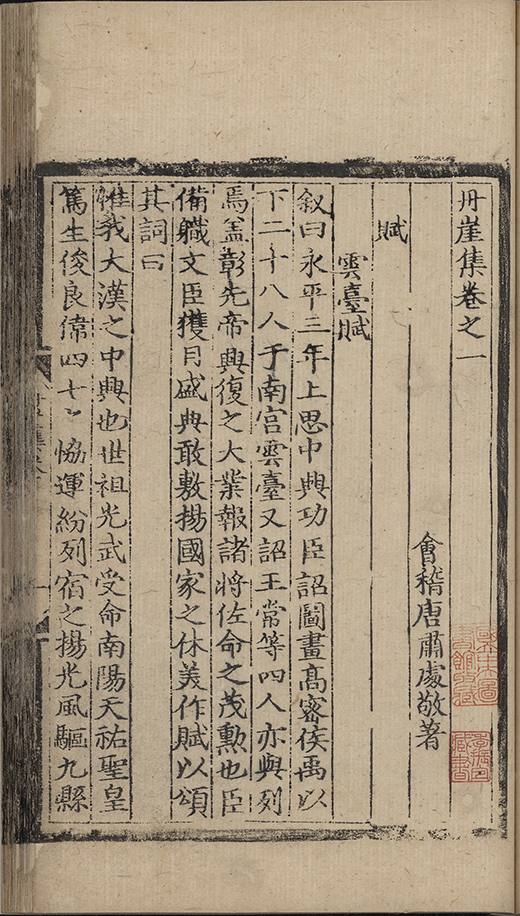 丹崖集卷之一
會稽唐肅處敬著
賦
雲臺賦
叙曰永平三年上思中興功臣詔圖畫髙宻侯禹以
下二十八人于南宫雲臺又詔王常等四人亦與列
焉盖彰先帝興復之大業報諸將佐命之茂勲也臣
備職文臣獲目盛典敢敷揚國家之休美作賦以頌
其詞曰
惟我大漢之中興也世祖光武受命南陽天祐聖皇
篤生俊良偉四七之恊運紛列宿之揚光風驅九縣